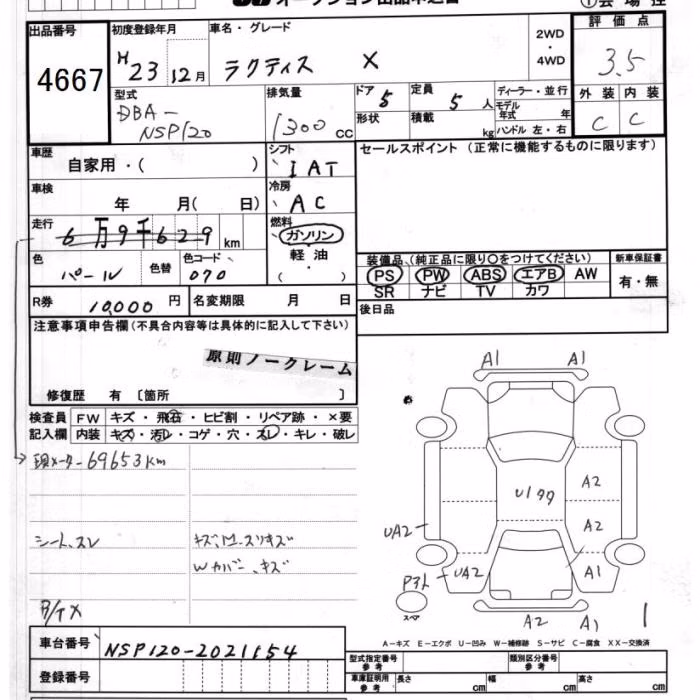 オークション出品申込書
①会場控
出品番号
4667
初度登録年月
H23 12月
車名・グレード
ラクティス X
2WD
・
4WD
評価点
3.5
外装 内装
C C
型式
DBA-
NSP120
排気量
1300 cc
ドア 5
形状
定員 5 人
積載 kg
ディーラー・並行
モデル年式 年
ハンドル 左・右
車歴
自家用・( )
シフト
IAT
セールスポイント (正常に機能するものに限ります)
車検
年 月( 日)
冷房
AC
走行
6万9千629 km
燃料
ガソリン
軽油
・
色
パール
色替
色コード
070
装備品、(純正品に限り〇をつけてください)
PS PW ABS エアB AW
SR ナビ TV カワ
新車保証書
有・無
R券 10,000 円
名変期限 月 日
後日品
注意事項申告欄(不具合内容等は具体的に記入して下さい)
原則ノークレーム
修復歴 有 〔箇所 〕
検査員
記入欄
FW キズ・飛石・ヒビ割・リペア跡・×要
内装 キズ・汚レ・コゲ・穴・スレ・キレ・破レ
現メーター69653km
シート、スレ
キズ、M.スリキズ
Wカバー、キズ
A1 A1
U1
A2
A2
UA2
A1
UA2
スペア
A2 A1
1
A-キズ E-エクボ U-凹み W-補修跡 S-サビ C-腐食 XX-交換済
車台番号
NSP120-2021154
登録番号
型式指定番号
参考
類別区分番号
参考
車庫証明用
参考
長さ cm
幅 cm
高さ cm